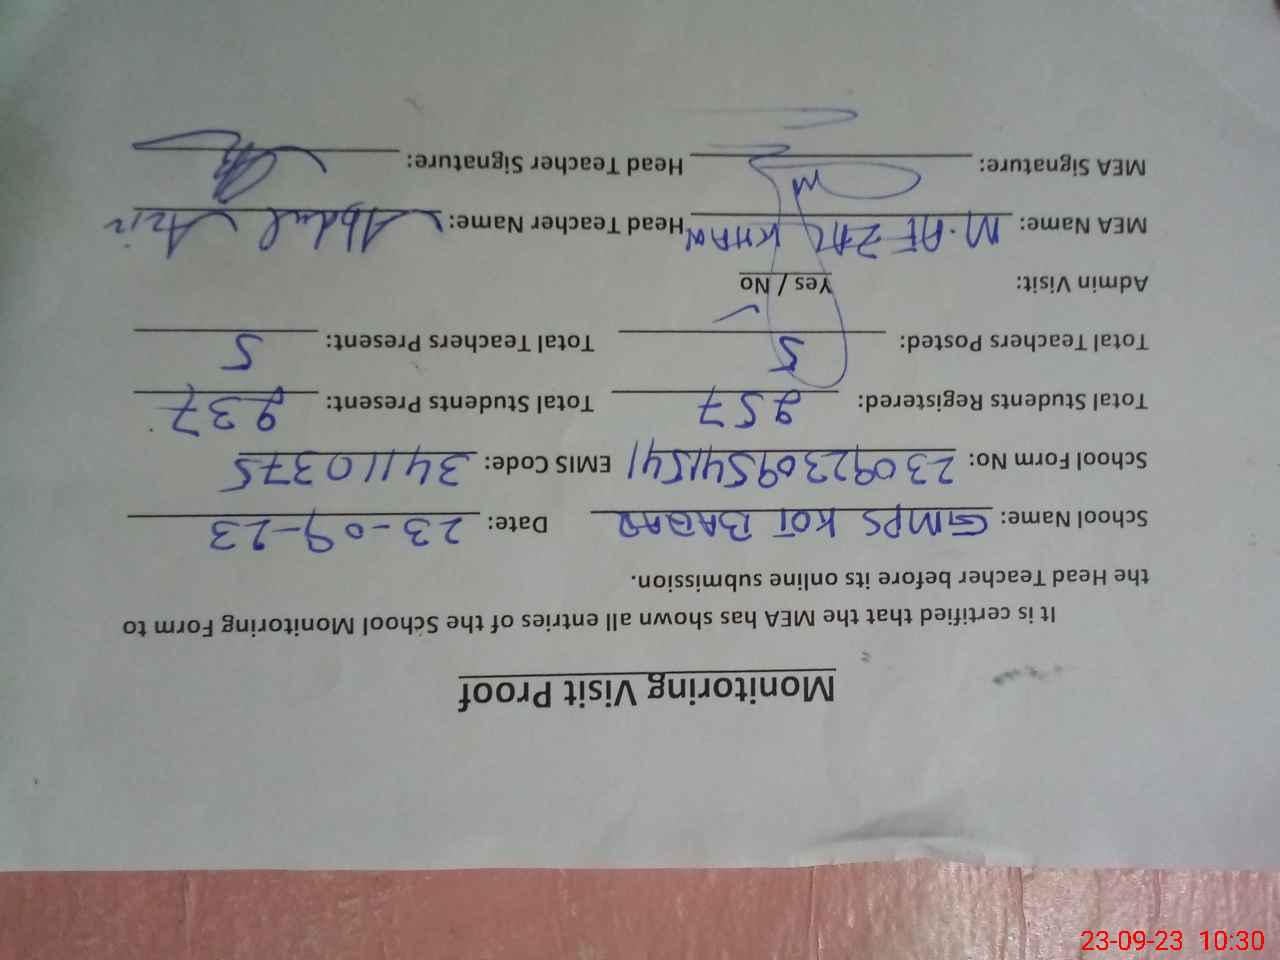 Monitoring Visit Proof
It is certified that the MEA has shown all entries of the School Monitoring Form to
the Head Teacher before its online submission.
School Name: GMPS KOT BAGAR Date: 23-09-23
School Form No: 230923095411541 EMIS Code: 34110375
Total Students Registered: 257 Total Students Present: 237
Total Teachers Posted: 5 Total Teachers Present: 5
Admin Visit: Yes / No
MEA Name: M. AFZAL KHAN Head Teacher Name: Abdul Aziz
MEA Signature: Head Teacher Signature:
23-09-23 10:30